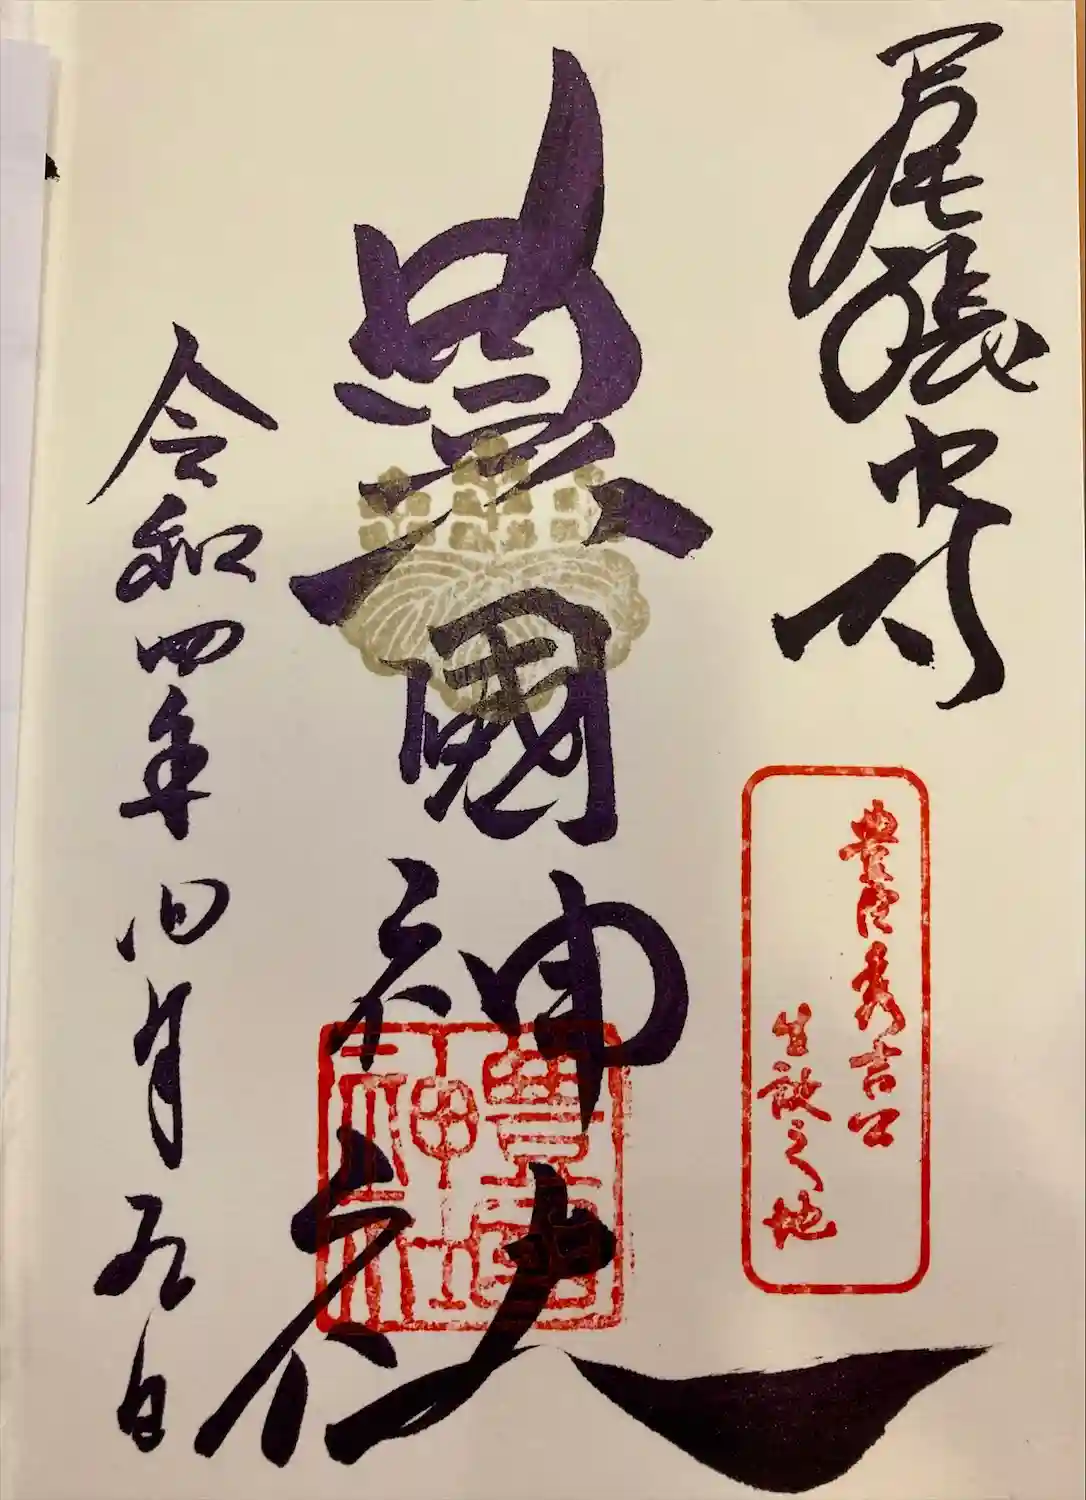 尾張中村
豊臣秀吉公
生誕之地
豊國神社
豊國
神社
令和四年四月九日